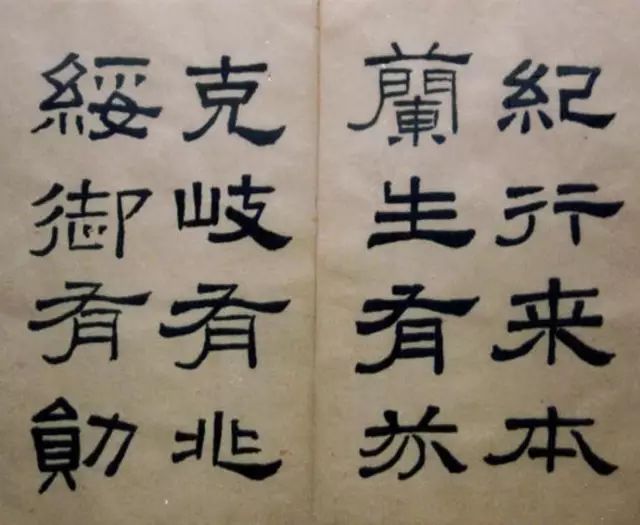 紀行来本
蘭生有芬
克岐有兆
綏御有勛